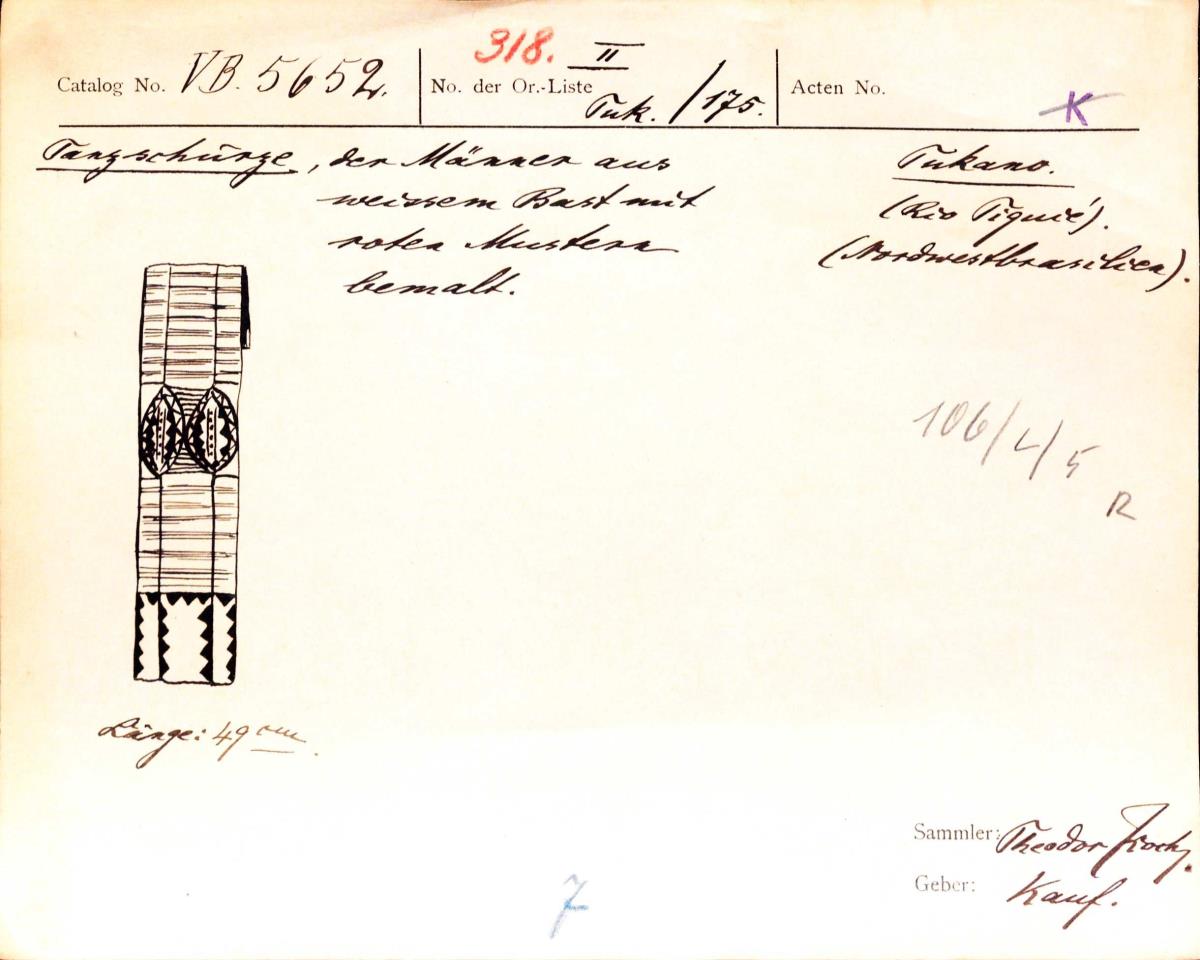 Catalog No. VB. 5652.
318. II
No. der Or.-Liste Tuk. /175.
Acten No.
K
Tanzschürze, der Männer aus
weissem Bast mit
roten Mustern
bemalt.
Tukano.
(Rio Tiquié).
(Nordwestbrasilien).
106/4/5
R
Länge: 49 cm.
Sammler: Theodor Koch.
Geber: Kauf.
7